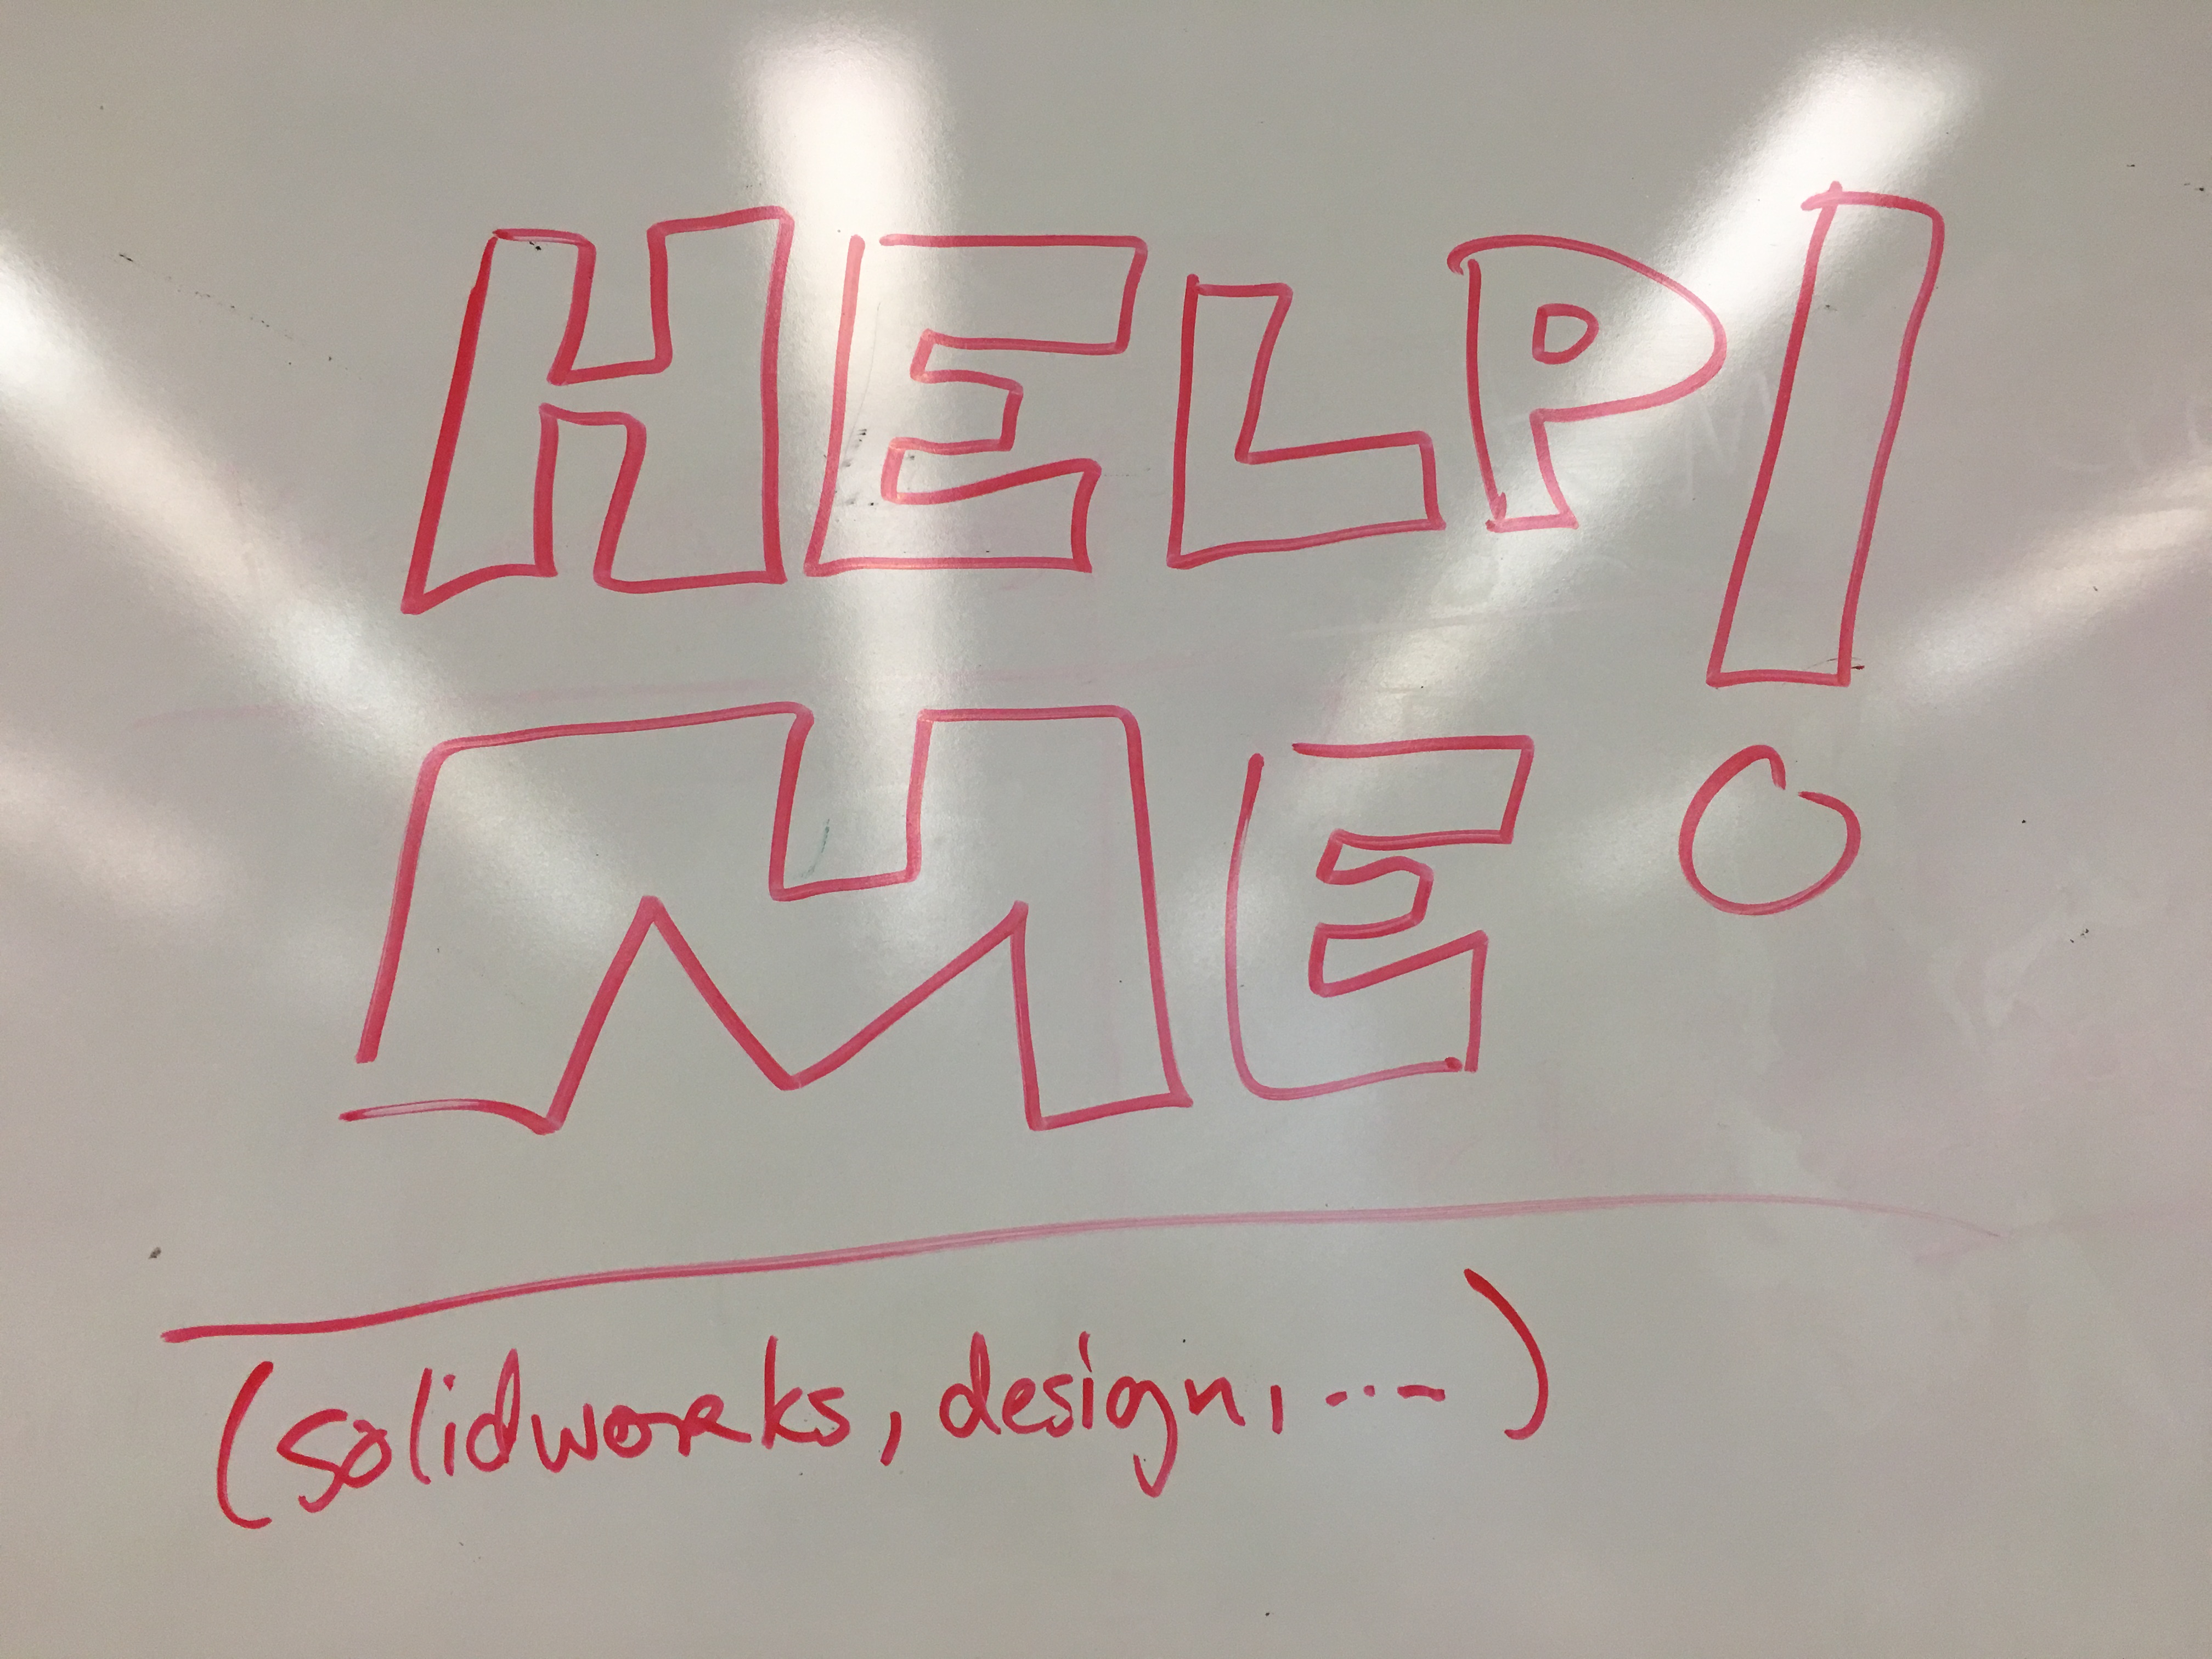 HELP!
ME
(solidworks, design, ...)